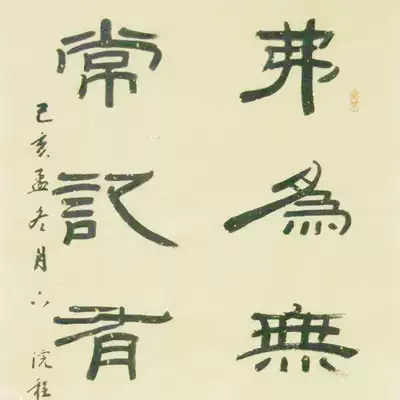 弗為無
常記有
己亥孟冬月下浣程